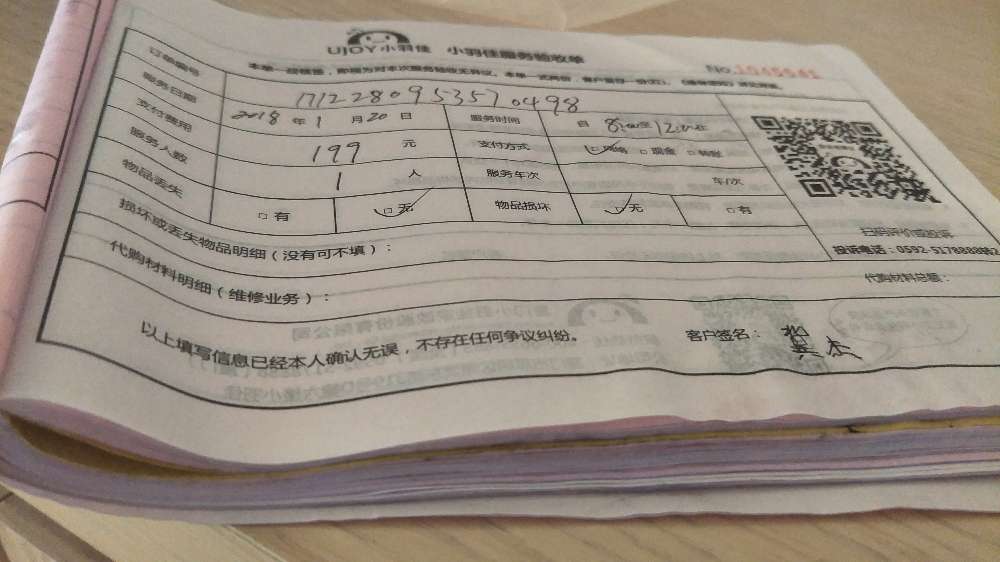 UJOY小羽佳 小羽佳服务验收单
No.
订单编号 171228095357 0498
服务日期 2018 年 1 月 20 日 服务时间 8:00至12:00
支付费用 199 元 支付方式 网络 □ 现金 □ 转账
服务人数 1 人 服务车次 车/次
物品丢失 □ 有 无 物品损坏 无 □ 有
扫码评价或投诉
损坏或丢失物品明细(没有可不填):
投诉电话:0592-5178888转2
代购材料明细(维修业务): 代购材料总额:
以上填写信息已经本人确认无误,不存在任何争议纠纷。 客户签名: